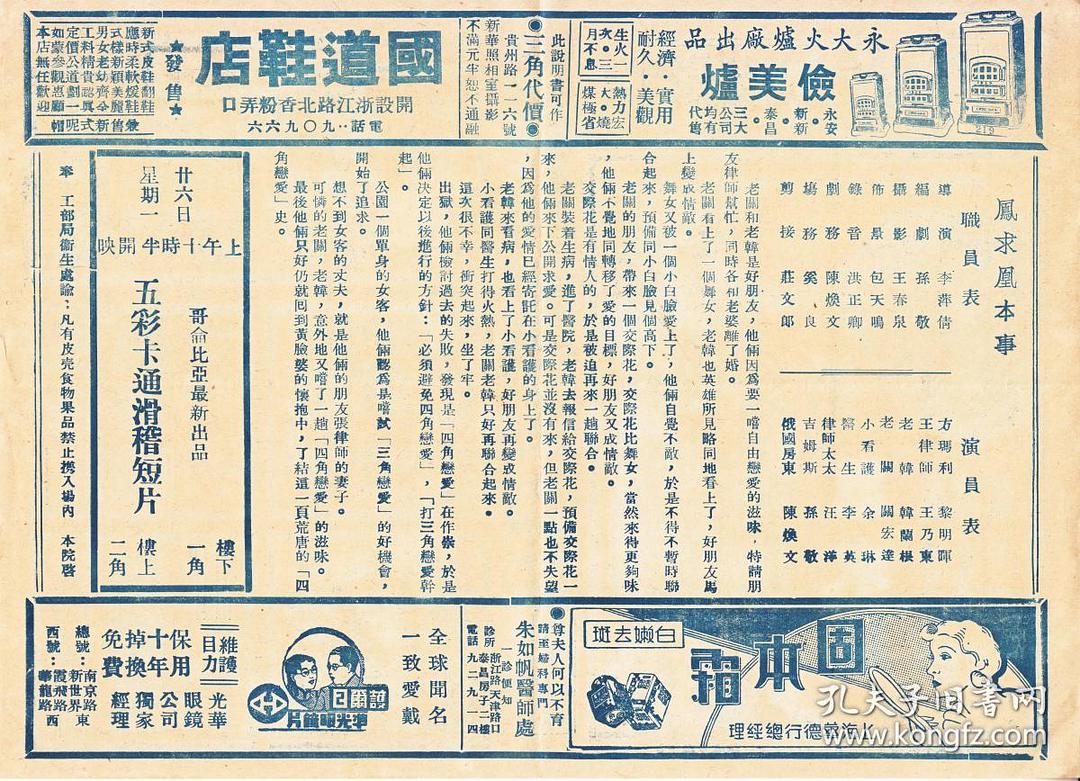 永大火爐廠出品
儉美爐
永安
新新
泰昌
三大公司均有代售
經濟·實用
耐久·美觀
生火一次·三月不息
熱力宏大·燒煤極省
219
此說明書可作
◉三角代價◉
貴州路一一六號
新華照相室攝影
不滿元半恕不通融
國道鞋店
開設浙江路北香粉弄口
電話··九〇九六六
★發售★
新式皮鞋翻鞋
應時柔軟煖鞋
式樣新穎美麗
男女老幼齊全
工料精貴認真
定價公道劃一
如蒙參觀惠顧
本店無任歡迎
兼售新式呢帽
鳳求凰本事
職員表
導演 李萍倩
編劇 孫敬
攝影 王春泉
佈景 包天鳴
錄音 洪正卿
劇務 陳煥文
場務 奚良
剪接 莊文郎
演員表
方瑪利 黎明暉
王律師 王乃東
老韓 韓蘭根
老關 關宏達
小看護 余琳
醫生 李英
律師太太 汪洋
吉姆斯 孫敏
俄國房東 陳煥文
老關和老韓是好朋友，他倆因爲要一嚐自由戀愛的滋味，特請朋
友律師幫忙，同時各和老婆離了婚。
老關看上了一個舞女，老韓也英雄所見略同地看上了，好朋友馬
上變成情敵。
舞女又被一個小白臉愛上了，他倆自覺不敵，於是不得不暫時聯
合起來，預備同小白臉見個高下。
老關的朋友，帶來一個交際花，交際花比舞女，當然來得更夠味
，他倆不覺地同轉移了愛的目標，好朋友又成情敵。
交際花是有情人的，於是被迫再來一趟聯合。
老關裝着生病，進了醫院，老韓去報信給交際花，預備交際花一
來，他倆來下公開求愛。可是交際花並沒有來，但老關一點也不失望
，因爲他的愛情已經寄託在小看護的身上了。
老韓來看病，也看上了小看護，好朋友再變成情敵。
小看護同醫生打得火熱，老關老韓只好再聯合起來。
這次很不幸，衝突起來，坐了牢。
出獄，他倆檢討過去的失敗，發現是「四角戀愛」在作祟，於是
他倆决定以後進行的方針：「必須避免四角戀愛」，「打三角戀愛幹
起」。
公園一個單身的女客，他倆認爲是嚐試「三角戀愛」的好機會，
開始了追求。
想不到女客的丈夫，就是他倆的朋友張律師的妻子。
可憐的老關，老韓，意外地又嚐了一趟「四角戀愛」的滋味。
最後他倆只好仍就回到黃臉婆的懷抱中，了結這一頁荒唐的「四
角戀愛」史。
廿六日
星期一
上午十時半開映
哥侖比亞最新出品
五彩卡通滑稽短片
樓下一角
樓上二角
奉 工部局衞生處諭：凡有皮壳食物果品禁止携入場內 本院啓
固本霜
白嫩去斑
上海義德行總經理
◉尊夫人何以不育
請至婦科專門
朱如帆醫師處
一診便知
診所 浙江路天津路口
泰昌房子二樓
電話 九二九一四
全球聞名
一致愛戴
準光眼鏡片
維護目力
保用十年
掉換免費
光華眼鏡公司獨家經理
總號：南京路新世界東
西號：霞飛路華龍路西
孔夫子旧書网
www.kongfz.com